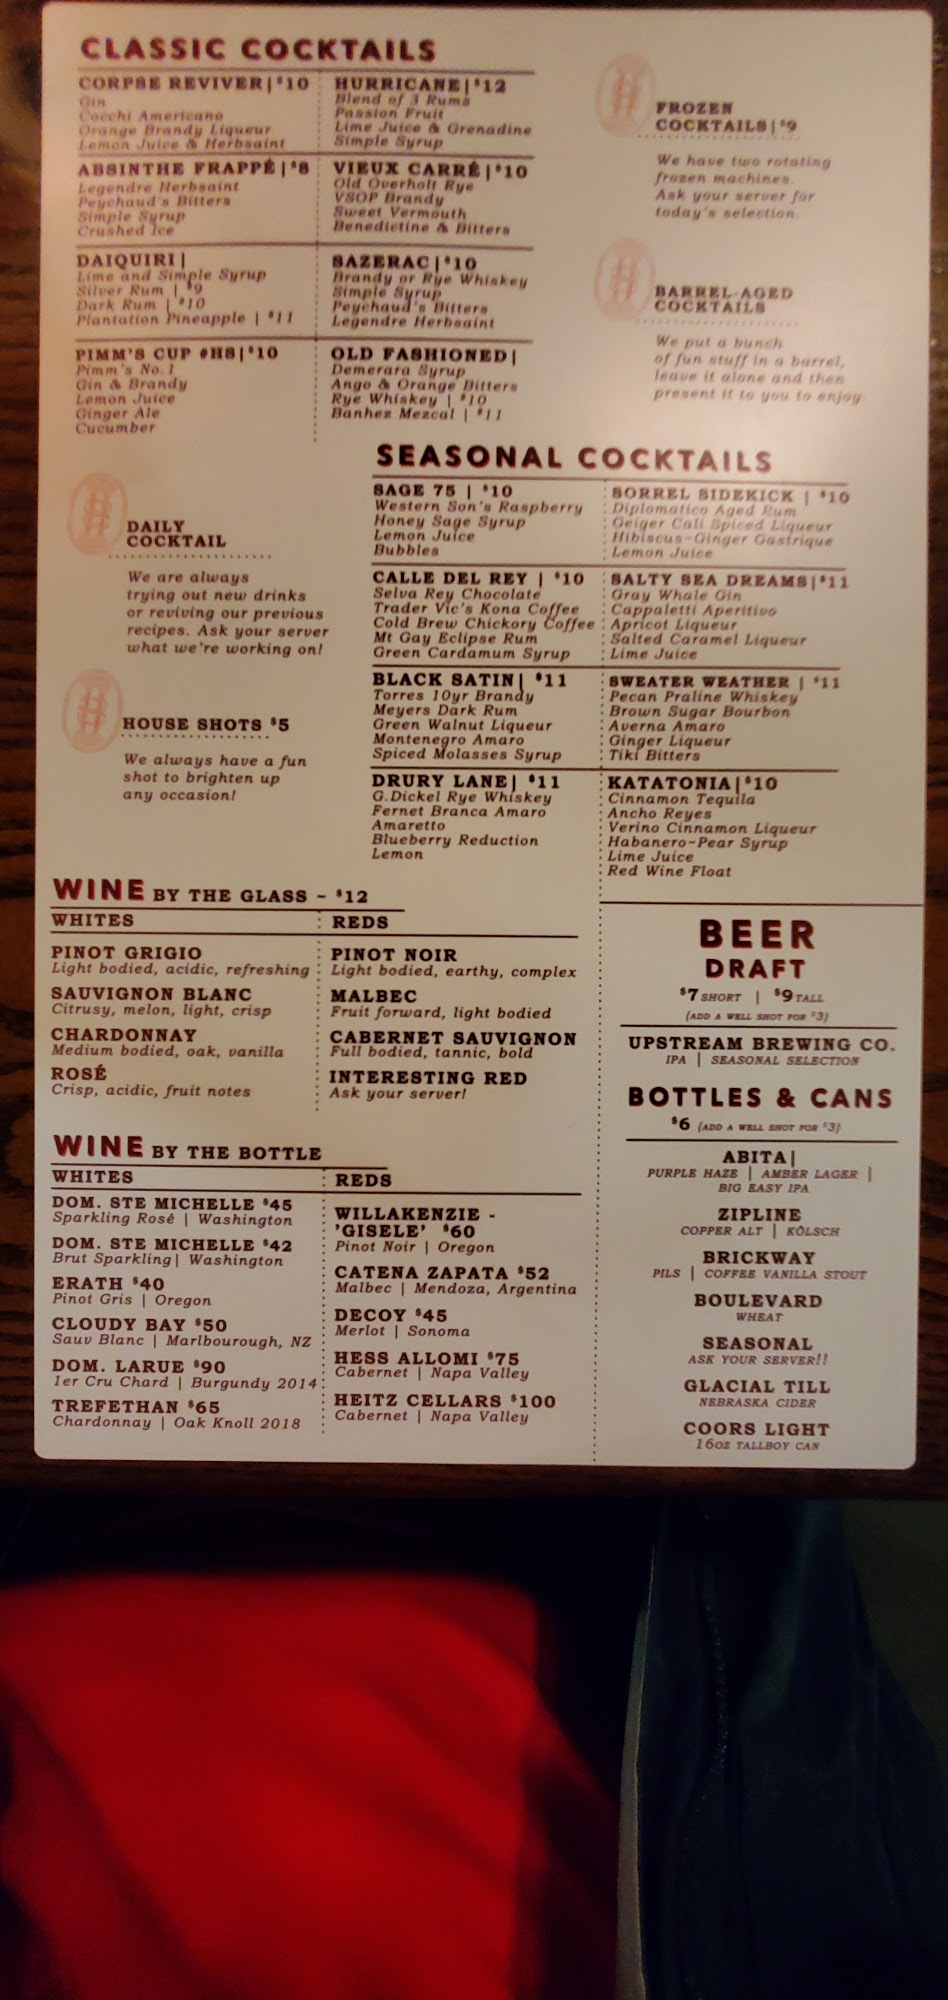 CLASSIC COCKTAILS
CORPSE REVIVER | $10
Gin
Cocchi Americano
Orange Brandy Liqueur
Lemon Juice & Herbsaint
ABSINTHE FRAPPÉ | $8
Legendre Herbsaint
Peychaud's Bitters
Simple Syrup
Crushed Ice
DAIQUIRI |
Lime and Simple Syrup
Silver Rum | $9
Dark Rum | $10
Plantation Pineapple | $11
PIMM'S CUP #HS | $10
Pimm's No. 1
Gin & Brandy
Lemon Juice
Ginger Ale
Cucumber
HURRICANE | $12
Blend of 3 Rums
Passion Fruit
Lime Juice & Grenadine
Simple Syrup
VIEUX CARRÉ | $10
Old Overholt Rye
VSOP Brandy
Sweet Vermouth
Benedictine & Bitters
SAZERAC | $10
Brandy or Rye Whiskey
Simple Syrup
Peychaud's Bitters
Legendre Herbsaint
OLD FASHIONED |
Demerara Syrup
Ango & Orange Bitters
Rye Whiskey | $10
Banhez Mezcal | $11
FROZEN
COCKTAILS | $9
We have two rotating
frozen machines.
Ask your server for
today's selection.
BARREL-AGED
COCKTAILS
We put a bunch
of fun stuff in a barrel,
leave it alone and then
present it to you to enjoy.
DAILY
COCKTAIL
We are always
trying out new drinks
or reviving our previous
recipes. Ask your server
what we're working on!
HOUSE SHOTS $5
We always have a fun
shot to brighten up
any occasion!
SEASONAL COCKTAILS
SAGE 75 | $10
Western Son's Raspberry
Honey Sage Syrup
Lemon Juice
Bubbles
CALLE DEL REY | $10
Selva Rey Chocolate
Trader Vic's Kona Coffee
Cold Brew Chickory Coffee
Mt Gay Eclipse Rum
Green Cardamum Syrup
BLACK SATIN | $11
Torres 10yr Brandy
Meyers Dark Rum
Green Walnut Liqueur
Montenegro Amaro
Spiced Molasses Syrup
DRURY LANE | $11
G.Dickel Rye Whiskey
Fernet Branca Amaro
Amaretto
Blueberry Reduction
Lemon
SORREL SIDEKICK | $10
Diplomatico Aged Rum
Geiger Cali Spiced Liqueur
Hibiscus-Ginger Gastrique
Lemon Juice
SALTY SEA DREAMS | $11
Gray Whale Gin
Cappaletti Aperitivo
Apricot Liqueur
Salted Caramel Liqueur
Lime Juice
SWEATER WEATHER | $11
Pecan Praline Whiskey
Brown Sugar Bourbon
Averna Amaro
Ginger Liqueur
Tiki Bitters
KATATONIA | $10
Cinnamon Tequila
Ancho Reyes
Verino Cinnamon Liqueur
Habanero-Pear Syrup
Lime Juice
Red Wine Float
WINE BY THE GLASS ~ $12
WHITES
PINOT GRIGIO
Light bodied, acidic, refreshing
SAUVIGNON BLANC
Citrusy, melon, light, crisp
CHARDONNAY
Medium bodied, oak, vanilla
ROSÉ
Crisp, acidic, fruit notes
REDS
PINOT NOIR
Light bodied, earthy, complex
MALBEC
Fruit forward, light bodied
CABERNET SAUVIGNON
Full bodied, tannic, bold
INTERESTING RED
Ask your server!
WINE BY THE BOTTLE
WHITES
DOM. STE MICHELLE $45
Sparkling Rosé | Washington
DOM. STE MICHELLE $42
Brut Sparkling | Washington
ERATH $40
Pinot Gris | Oregon
CLOUDY BAY $50
Sauv Blanc | Marlbourough, NZ
DOM. LARUE $90
1er Cru Chard | Burgundy 2014
TREFETHAN $65
Chardonnay | Oak Knoll 2018
REDS
WILLAKENZIE -
'GISELE' $60
Pinot Noir | Oregon
CATENA ZAPATA $52
Malbec | Mendoza, Argentina
DECOY $45
Merlot | Sonoma
HESS ALLOMI $75
Cabernet | Napa Valley
HEITZ CELLARS $100
Cabernet | Napa Valley
BEER
DRAFT
$7 SHORT | $9 TALL
(ADD A WELL SHOT FOR $3)
UPSTREAM BREWING CO.
IPA | SEASONAL SELECTION
BOTTLES & CANS
$6 (ADD A WELL SHOT FOR $3)
ABITA |
PURPLE HAZE | AMBER LAGER |
BIG EASY IPA
ZIPLINE
COPPER ALT | KÖLSCH
BRICKWAY
PILS | COFFEE VANILLA STOUT
BOULEVARD
WHEAT
SEASONAL
ASK YOUR SERVER!!
GLACIAL TILL
NEBRASKA CIDER
COORS LIGHT
16OZ TALLBOY CAN